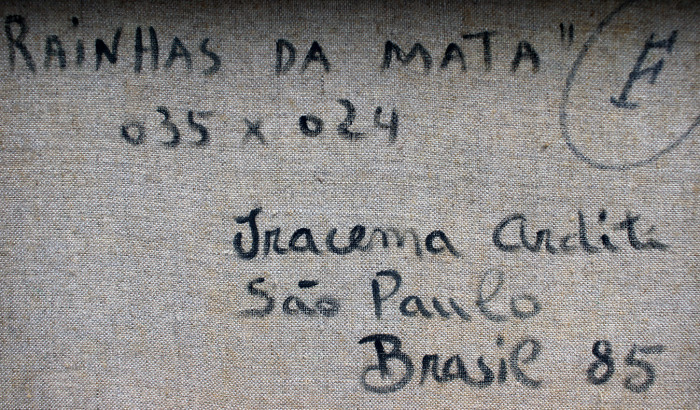 RAiNHAS DA MATA" F
035 x 024
Iracema Arditi
São Paulo
Brasil 85